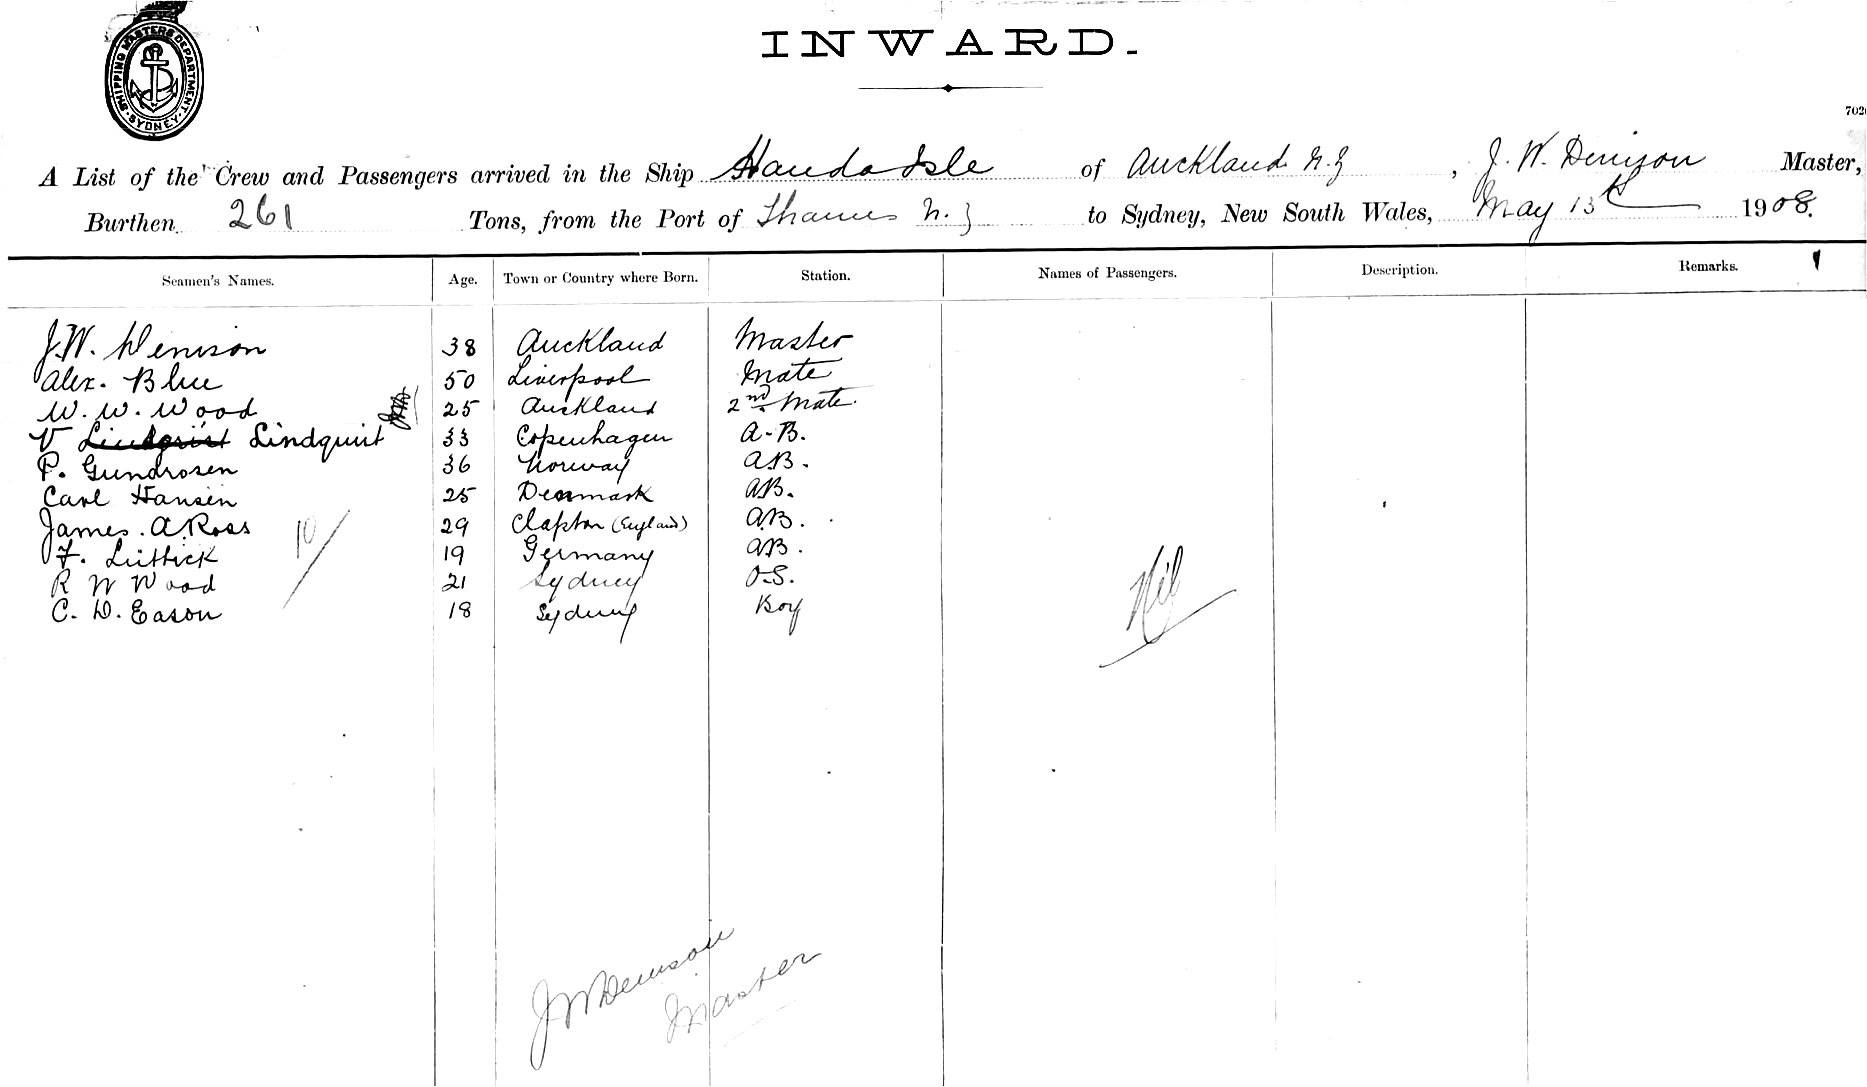 SHIPPING MASTERS DEPARTMENT. SYDNEY.
INWARD.
702
A List of the Crew and Passengers arrived in the Ship Handa Isle of Auckland N.Z, J. W. Denison Master,
Burthen 261 Tons, from the Port of Thames N.Z to Sydney, New South Wales, May 13th 1908.
Seamen's Names. Age. Town or Country where Born. Station. Names of Passengers. Description. Remarks.
J.W. Denison 38 Auckland Master
Alex. Blue 50 Liverpool Mate
W. W. Wood 25 Auckland 2nd Mate.
V Lindquist Lindquist 33 Copenhagen A-B.
P. Gundrosen 36 Norway A.B.
Carl Hansen 25 Denmark AB.
James. A. Ross 29 Clapton (England) A.B.
F. Lüttick 19 Germany AB.
R W Wood 21 Sydney O.S.
C. D. Eason 18 Sydney Boy
10/
Nil
JW Denison
Master